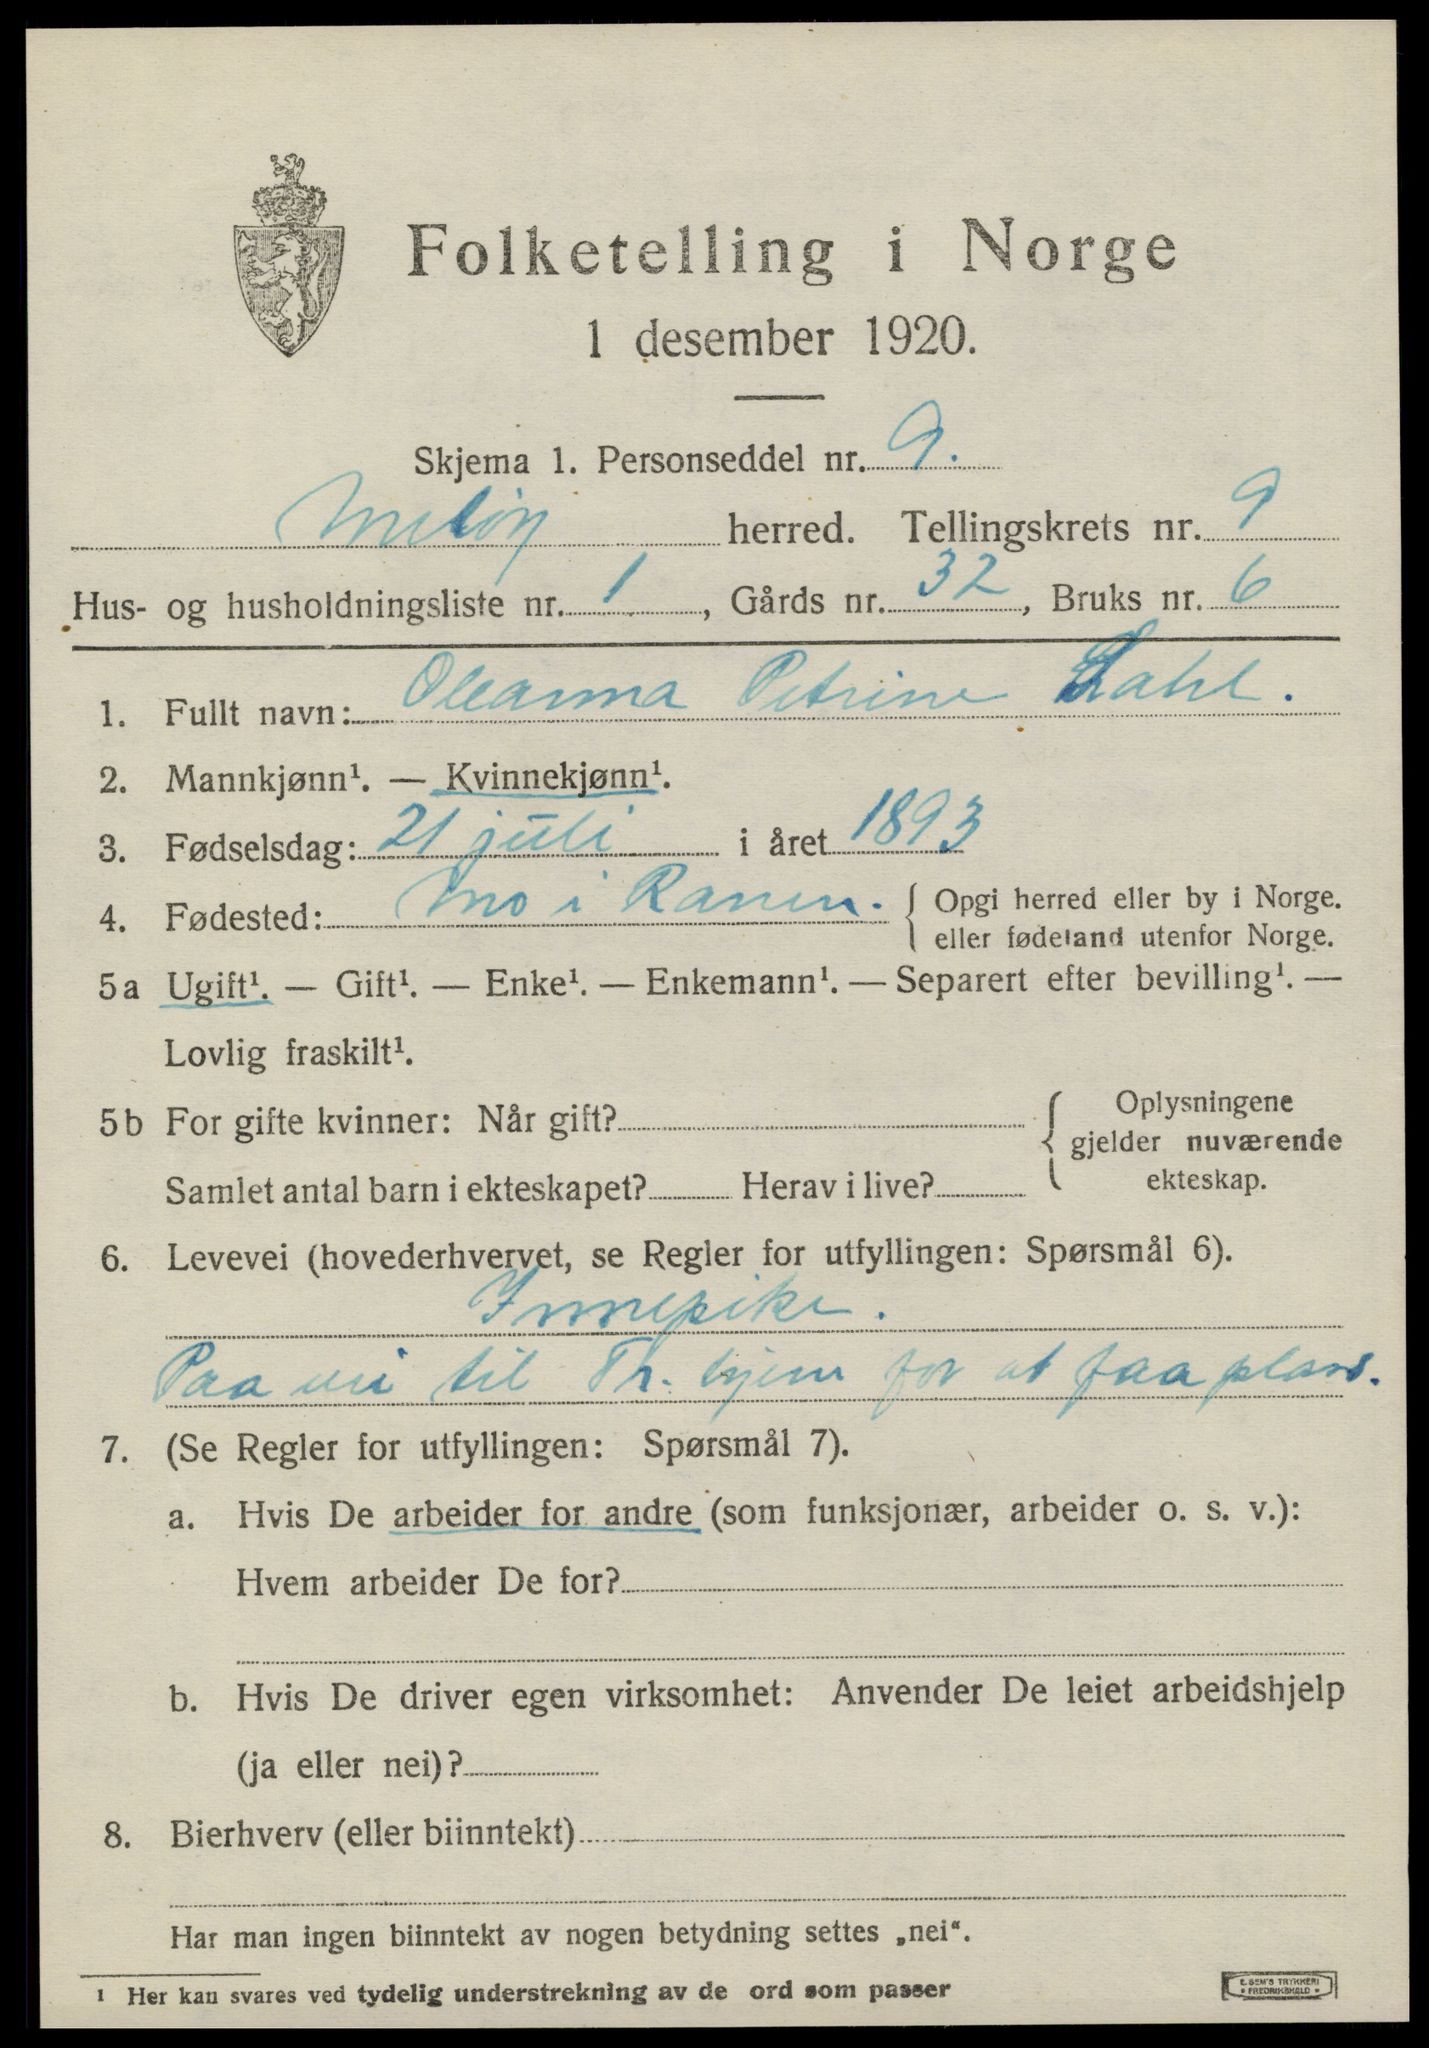 Folketelling i Norge
1 desember 1920.
Skjema 1. Personseddel nr. 9.
Meløy herred. Tellingskrets nr. 9
Hus- og husholdningsliste nr. 1, Gårds nr. 32, Bruks nr. 6
1. Fullt navn: Oleanna Petrine Dahl.
2. Mannkjønn¹. — Kvinnekjønn¹.
3. Fødselsdag: 21 juli i året 1893
4. Fødested: Mo i Ranen. { Opgi herred eller by i Norge.
eller fødeland utenfor Norge.
5a Ugift¹. — Gift¹. — Enke¹. — Enkemann¹. — Separert efter bevilling¹. —
Lovlig fraskilt¹.
5b For gifte kvinner: Når gift? { Oplysningene
gjelder nuværende
Samlet antal barn i ekteskapet? Herav i live? ekteskap.
6. Levevei (hovederhvervet, se Regler for utfyllingen: Spørsmål 6).
Innepike.
Paa vei til Th. hjem for at faa plass.
7. (Se Regler for utfyllingen: Spørsmål 7).
a. Hvis De arbeider for andre (som funksjonær, arbeider o. s. v.):
Hvem arbeider De for?
b. Hvis De driver egen virksomhet: Anvender De leiet arbeidshjelp
(ja eller nei)?
8. Bierhverv (eller biinntekt)
Har man ingen biinntekt av nogen betydning settes „nei“.
¹ Her kan svares ved tydelig understrekning av de ord som passer
E. SEM'S TRYKKERI
• FREDRIKSHALD •